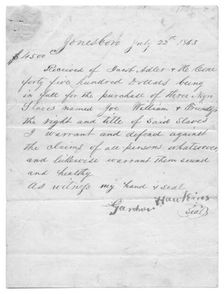 Jonesboro July 22d 1863
$4500
Received of Jacob Adler & Co
forty five hundred Dollars being
in full for the purchase of three Negro
Slaves named Joe William &
the right and title of Said Slaves
I warrant and defend against
the claims of all persons whatsoever
and likewise warrant them sound
and healthy
As witness my hand & seal
Hawkins
Seal